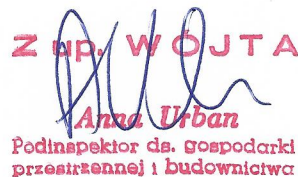 Z up. WÓJTA
Anna Urban
Podinspektor ds. gospodarki
przestrzennej i budownictwa